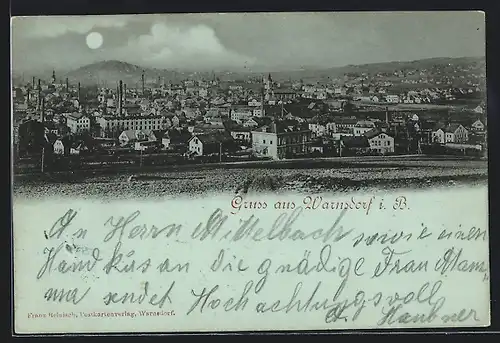 Gruss aus Warnsdorf i. B.
An Herrn Mittelbach sowie einen
Handkuss an die gnädige Frau Mam-
ma sendet Hochachtungsvoll
Franz Reinisch, Postkartenverlag, Warnsdorf.